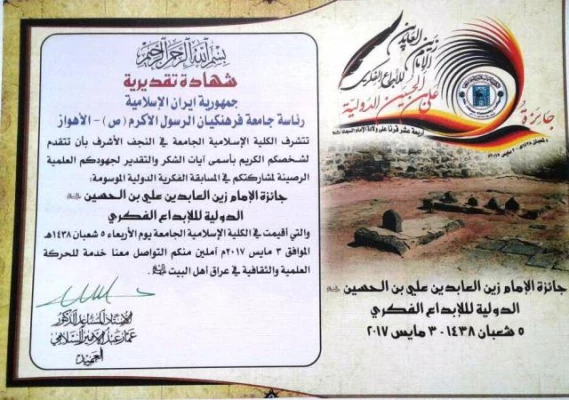 بسم الله الرحمن الرحيم
شهادة تقديرية
جمهورية ايران الإسلامية
رئاسة جامعة فرهنكيان الرسول الاكرم (ص) - الأهواز
تتشرف الكلية الإسلامية الجامعة في النجف الأشرف بأن تتقدم
لشخصكم الكريم بأسمى آيات الشكر والتقدير لجهودكم العلمية
الرصينة لمشاركتكم في المسابقة الفكرية الدولية الموسومة:
جائزة الإمام زين العابدين علي بن الحسين
الدولية لللابداع الفكري
والتي أقيمت في الكلية الإسلامية الجامعة يوم الأربعاء ٥ شعبان ١٤٣٨هـ
الموافق ٣ مايس ٢٠١٧م آملين منكم التواصل معنا خدمة للحركة
العلمية والثقافية في عراق أهل البيت
الاستاذ المساعد الدكتور
عمار عبد الامير السلامي
العميد
جائزة
الإمام زين العابدين
للابداع الفكري
علي بن الحسين الدولية
جائزة الإمام زين العابدين علي بن الحسين
الدولية لللابداع الفكري
٥ شعبان ١٤٣٨ - ٣ مايس ٢٠١٧